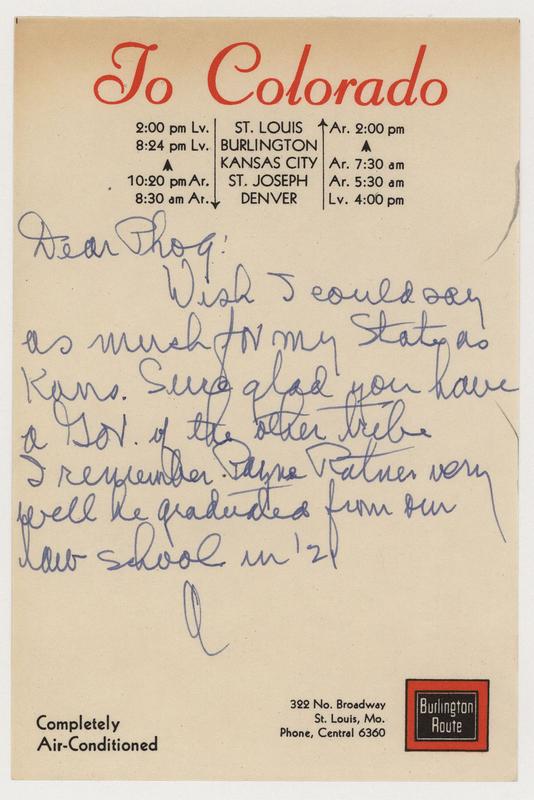 To Colorado
2:00 pm Lv. ST. LOUIS Ar. 2:00 pm
8:24 pm Lv. BURLINGTON
KANSAS CITY Ar. 7:30 am
10:20 pm Ar. ST. JOSEPH Ar. 5:30 am
8:30 am Ar. DENVER Lv. 4:00 pm
Dear Phog:
Wish I could say
as much for my State as
Kans. Sure glad you have
a Gov. of the other tribe
I remember Payne Ratner very
well he graduated from our
law school in '21
Completely
Air-Conditioned
322 No. Broadway
St. Louis, Mo.
Phone, Central 6360
Burlington
Route